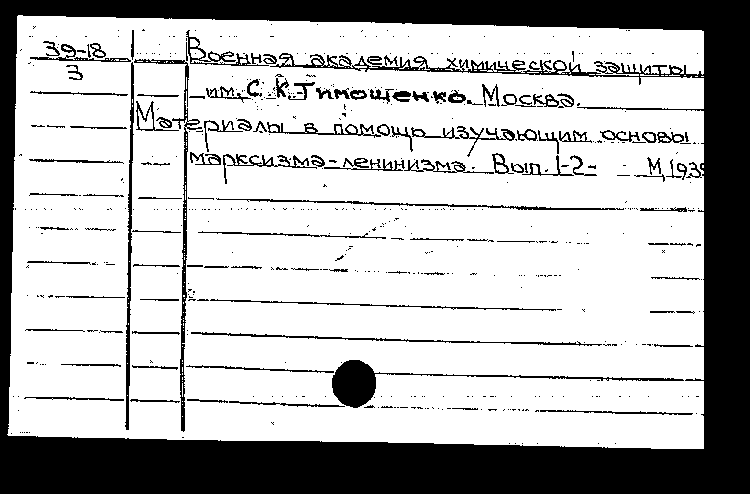 39-18
3
Военная академия химической защиты
им. С. К. Тимошенко. Москва.
Материалы в помощь изучающим основы
марксизма-ленинизма. Вып. 1-2- М, 1939